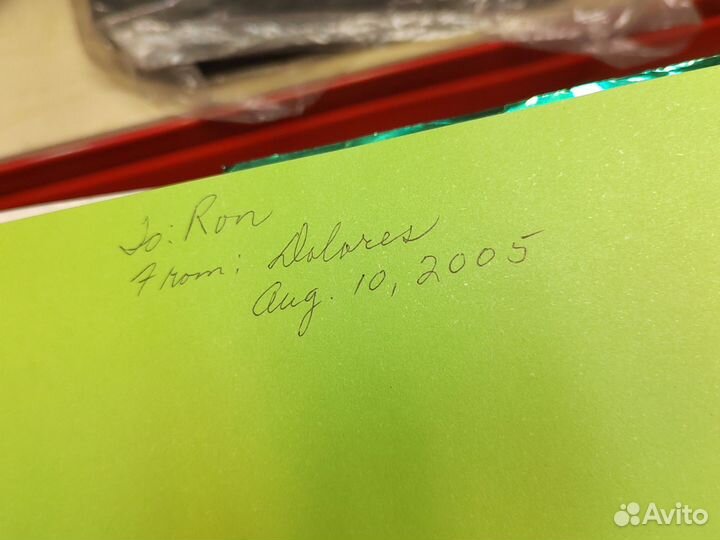 To: Ron
From: Dolores
Aug. 10, 2005
Avito